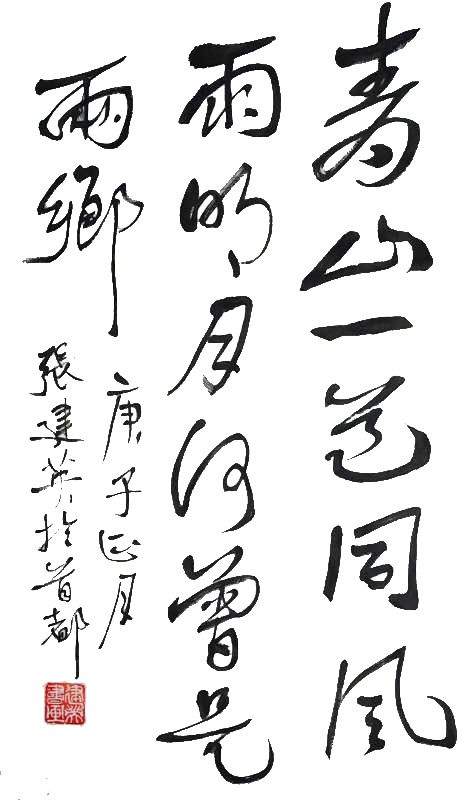 青山一道同风
雨明月何曾是
兩鄉
庚子正月
張建英於首都